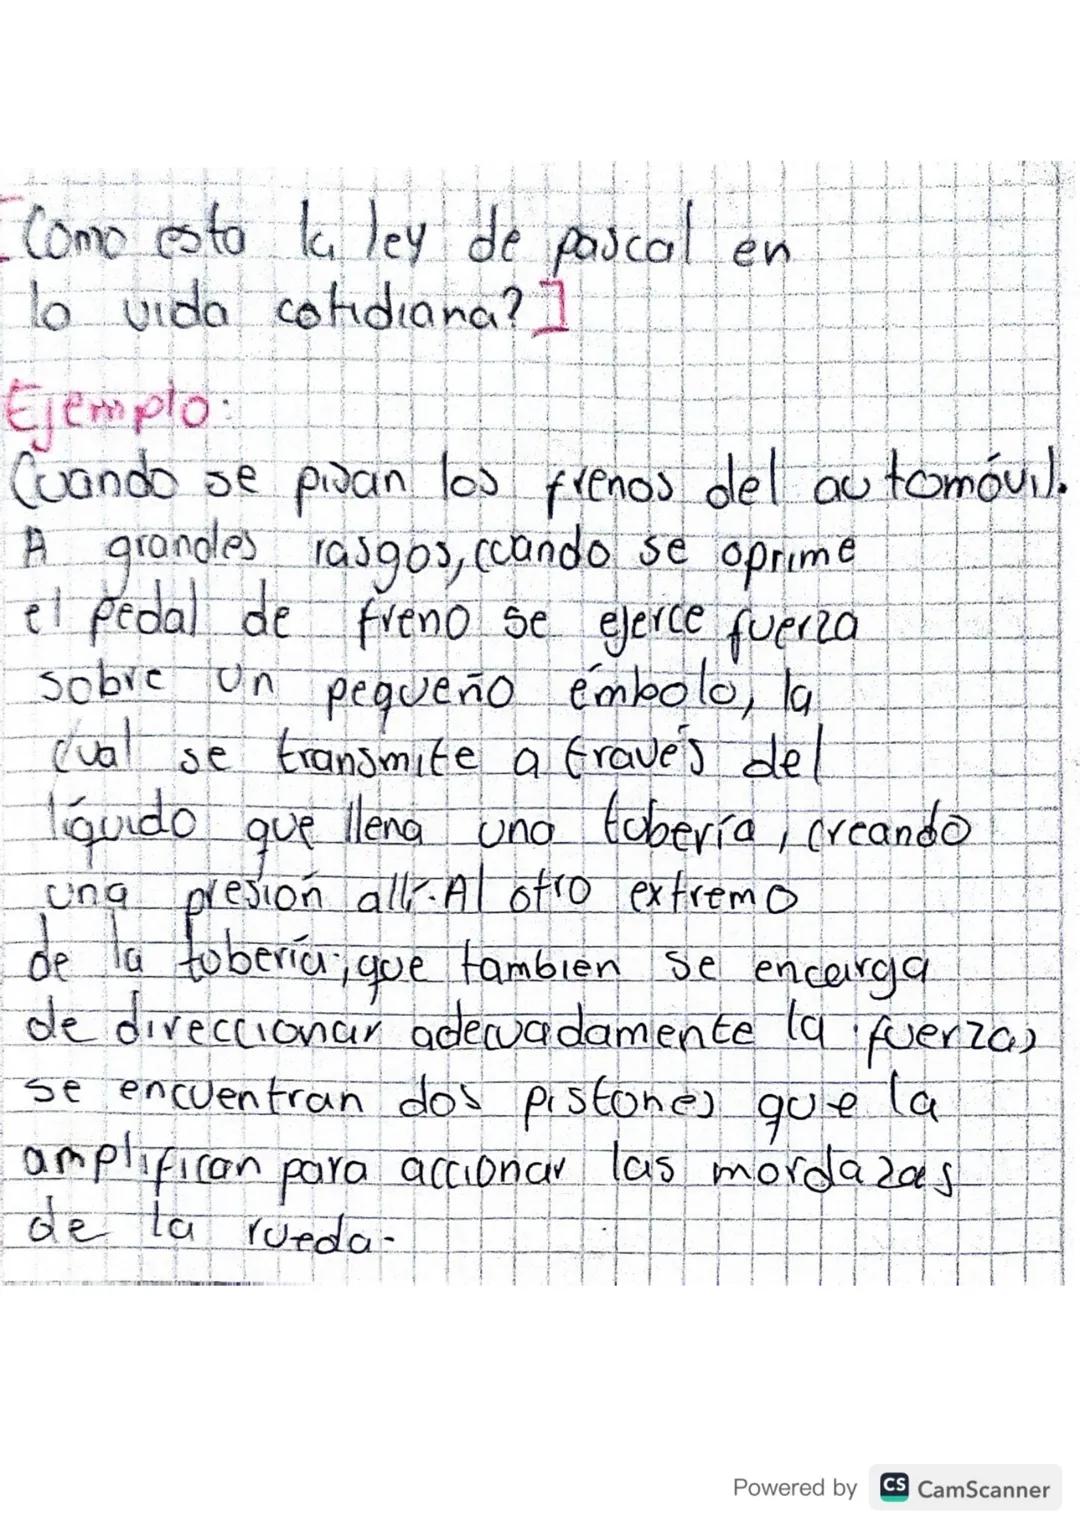 [Como esta la ley de pascal en
la vida cotidiana?]
Ejemplo:
Cuando se pisan los frenos del automóvil.
A grandes rasgos, cuando se oprime
el pedal de freno se ejerce fuerza
sobre un pequeño émbolo, la
cual se transmite a través del
líquido que llena una tobería, creando
una presión allí. Al otro extremo
de la tobería, que tambien se encarga
de direccionar adecuadamente la fuerza,
se encuentran dos pistones que la
amplifican para accionar las mordazas
de la rueda.
Powered by CS CamScanner